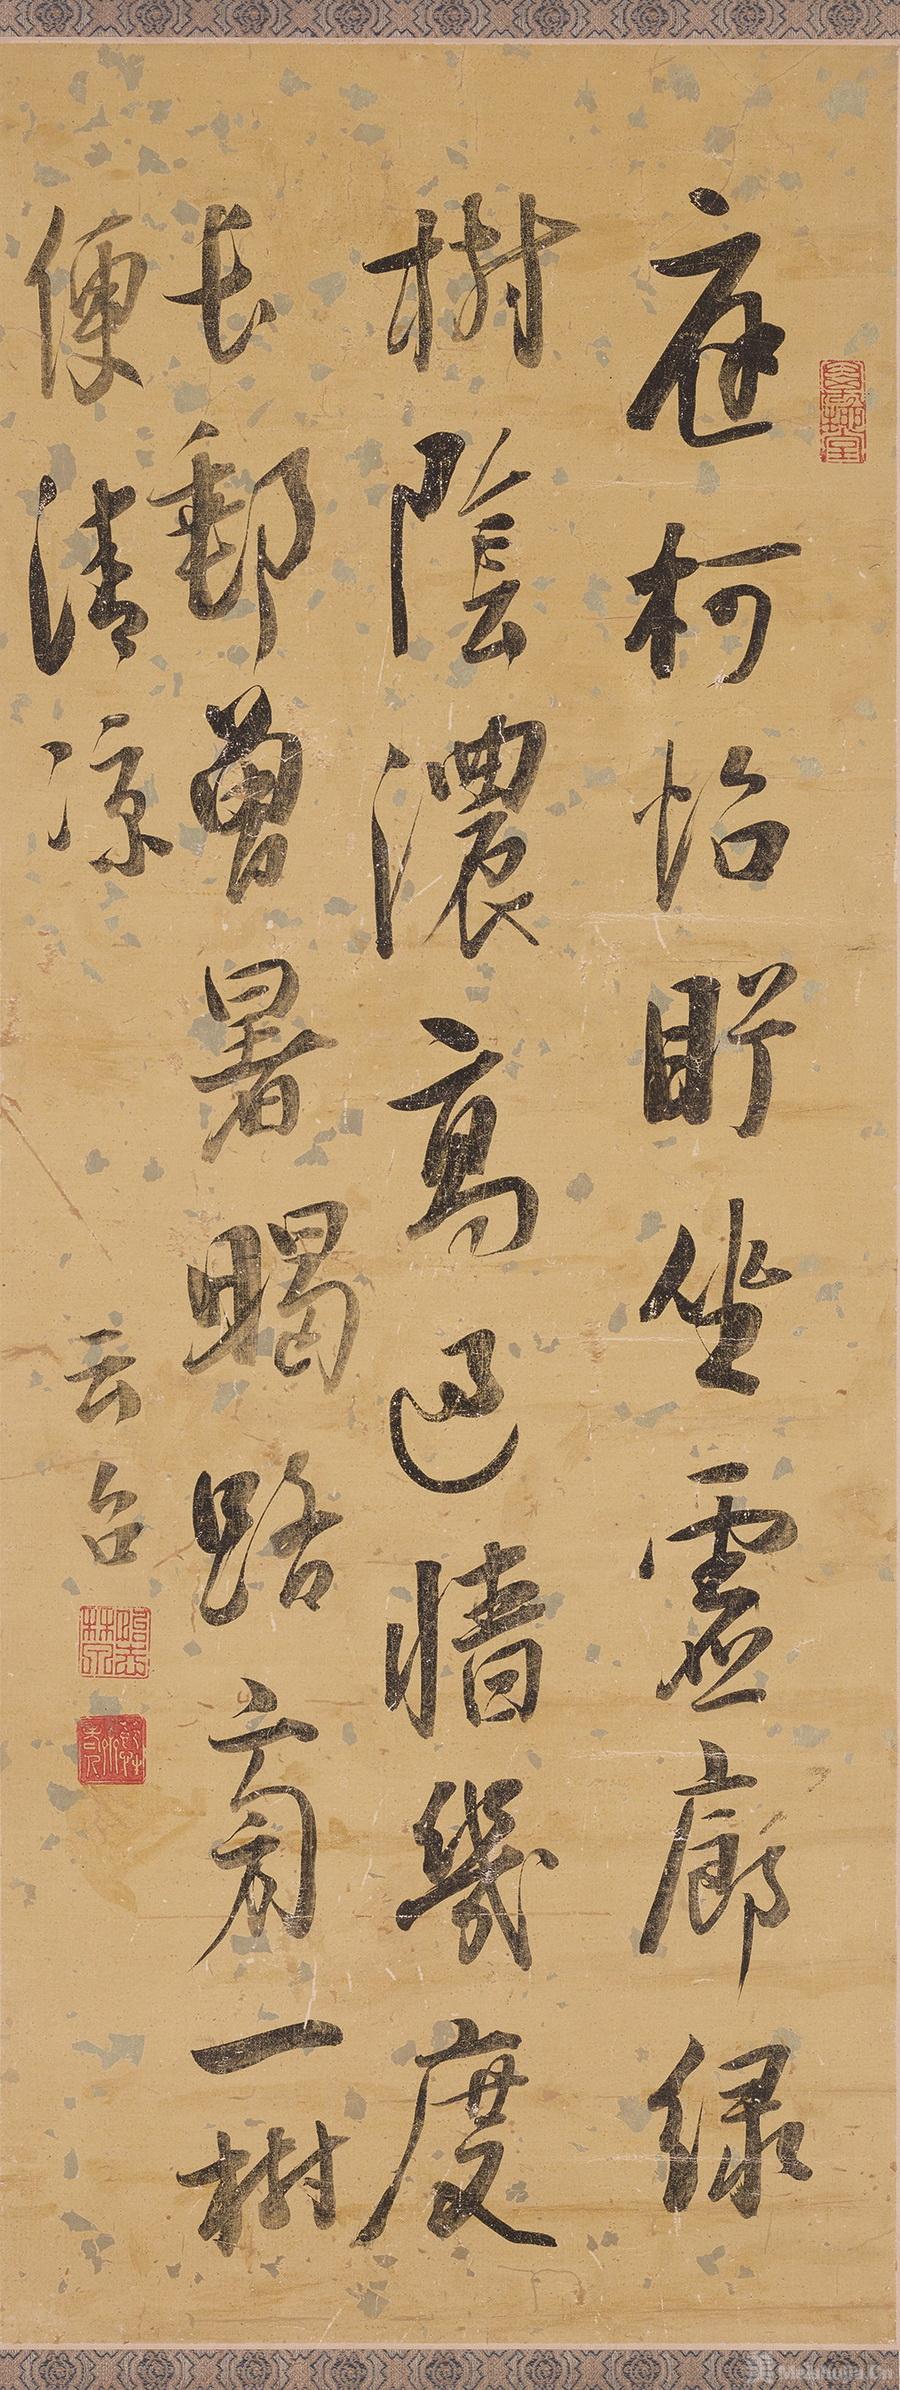 庭柯怡眄坐虛廊綠
樹陰濃高過牆幾度
長郵曾暑暍路旁一樹
便清凉
云台